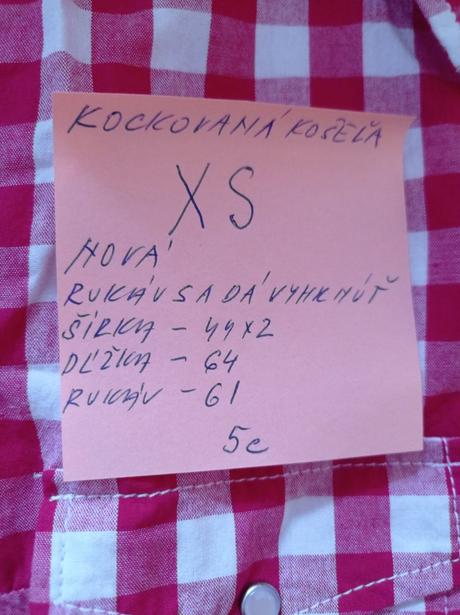 KOCKOVANÁ KOŠEĽA
XS
NOVÁ
RUKÁV SA DÁ VYHRNÚŤ
ŠÍRKA - 44x2
DĹŽKA - 64
RUKÁV - 61
5e